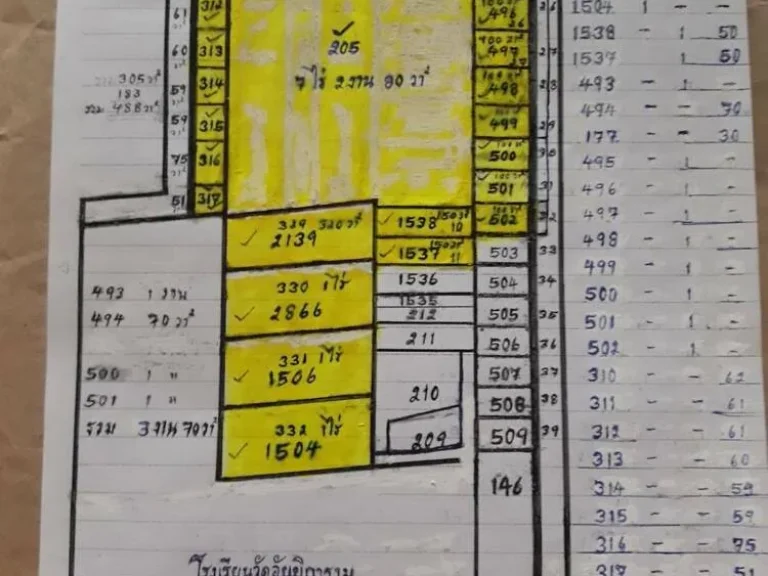 61 312
60 313
59 314
59 315
75 316
51 317
305 วา²
183
รวม 488 วา²
205
7 ไร่ 2 งาน 80 วา²
496 26
497 27
498 28
499 29
500
501 31
502 32
503 33
504 34
505 35
506 36
507 37
508 38
509 39
146
329 320 วา²
2139
1538 150วา² 10
1537 150วา² 11
1536
1535
212
211
210
209
330 1ไร่
2866
331 1ไร่
1506
332 1ไร่
1504
493 1 งาน
494 70 วา²
500 1 "
501 1 "
รวม 3งาน 70วา²
1504 1 - -
1538 - 1 50
1537 1 50
493 - 1 -
494 - - 70
177 - - 30
495 - 1 -
496 - 1 -
497 - 1 -
498 - 1 -
499 - 1 -
500 - 1 -
501 - 1 -
502 - 1 -
310 - - 62
311 - - 61
312 - - 61
313 - - 60
314 - - 59
315 - - 59
316 - - 75
317 - - 51